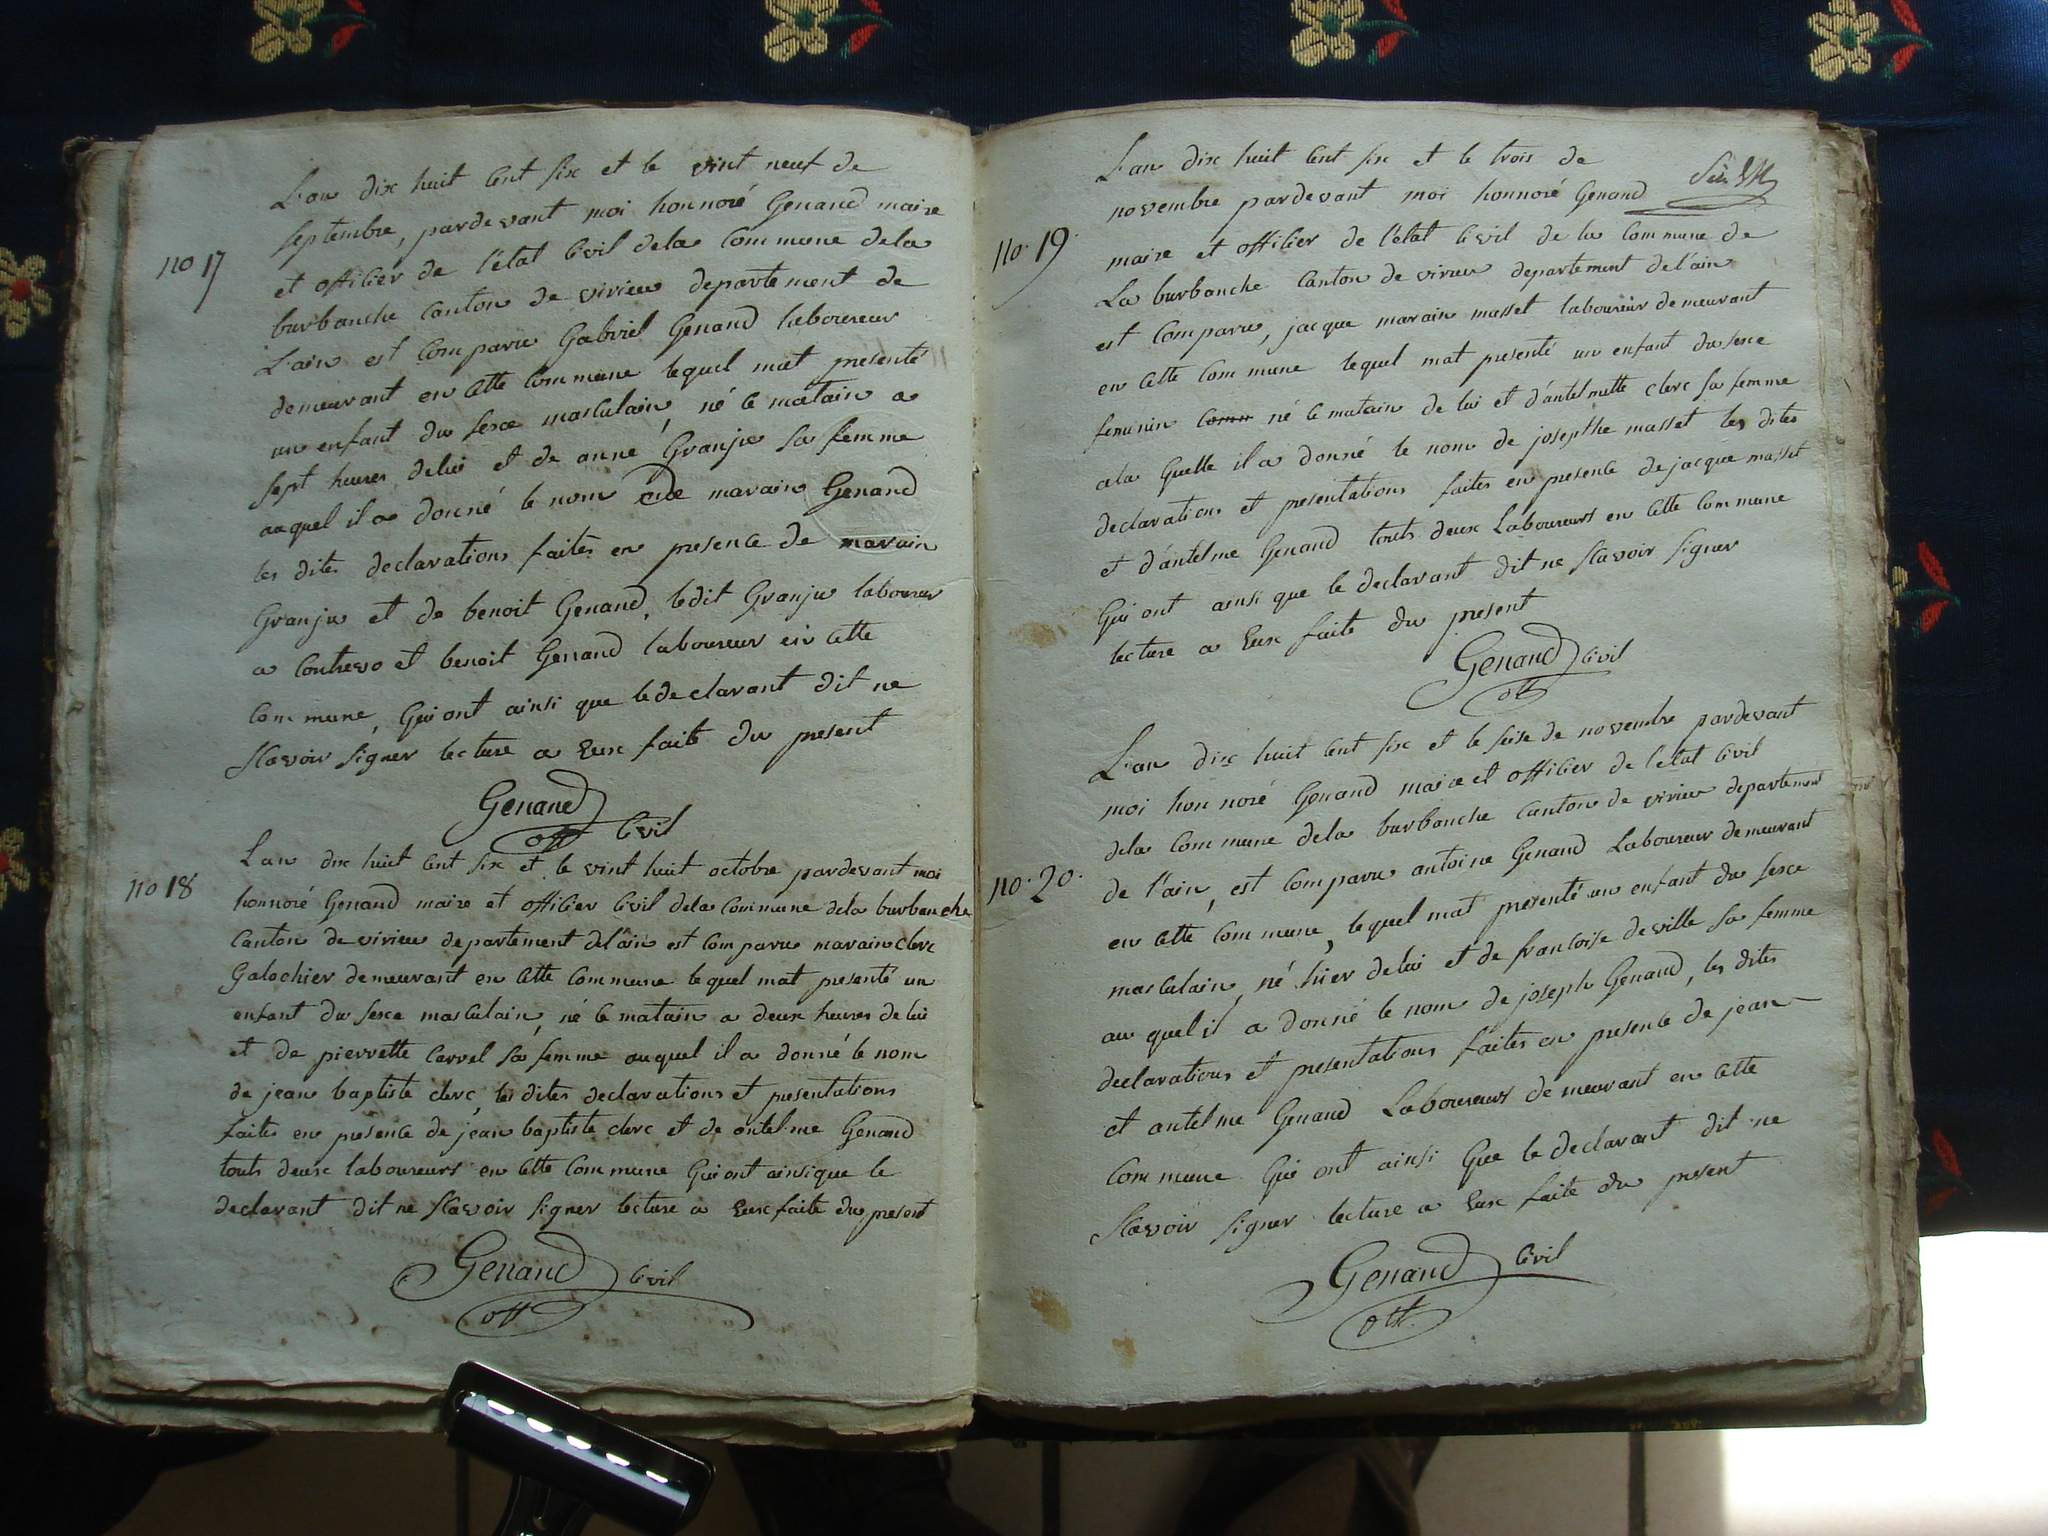 no 17
L'an dix huit cent six et le vint neuf de
septembre, pardevant moi honnoré Genand maire
et officier de l'état Civil dela Commune dela
burbanche canton de virieu departement de
L'ain est Comparu Gabriel Genand laboureur
demeurant en cette Commune lequel mat presenté
un enfant du sexe masculain, né ce matain a
sept heures delui et de anne Granju sa femme
auquel il a donné le nom de marain Genand
les dites declarations faites en presence de marain
Granju et de benoit Genand, ledit Granju laboureur
a Contrevo et benoit Genand laboureur en cette
Commune, Qui ont ainsi que le declarant dit ne
scavoir signer lecture a Eux faite du present
Genand
off Civil
no 18
L'an dix huit cent six et le vint huit octobre pardevant moi
honnoré Genand maire et officier Civil dela Commune dela burbanche
Canton de virieu departement del'ain est Comparu marain clerc
Galochier demeurant en cette Commune lequel mat presenté un
enfant du sexe masculain, né ce matain a deux heures de lui
et de pierrette Carrel sa femme auquel il a donné le nom
de jean baptiste clerc, les dites declarations et presentations
faites en presence de jean baptiste clerc et de antelme Genand
touts deux laboureurs en cette Commune Qui ont ainsi que le
declarant dit ne scavoir signer lecture a Eux faite du present
Genand Civil
off
no. 19.
L'an dix huit cent six et le trois de
novembre pardevant moi honnoré Genand
maire et officier de l'état Civil de la Commune de
La burbanche Canton de virieu departement de l'ain
est Comparu, jacque marain masset laboureur demeurant
en cette Commune lequel mat presenté un enfant du sexe
feminin Comm né ce matain de lui et d'antelmette clerc sa femme
ala Quelle il a donné le nom de josepthe masset les dites
declarations et presentations faites en presence de jacque masset
et d'antelme Genand touts deux Laboureurs en cette Commune
Qui ont ainsi que le declarant dit ne scavoir signer
lecture a Eux faite du present
Genand Civil
off
no. 20.
L'an dix huit cent six et le seise de novembre pardevant
moi honnoré Genand maire et officier de l'état Civil
dela Commune dela burbanche Canton de virieu departement
de l'ain, est Comparu antoine Genand Laboureur demeurant
en cette Commune, lequel mat presenté un enfant du sexe
masculain, né hier de lui et de francoise deville sa femme
au quel il a donné le nom de joseph Genand, les dites
declarations et presentations faites en presence de jean
et antelme Genand Laboureurs demeurant en cette
Commune Qui ont ainsi Que le declarant dit ne
scavoir signer lecture a Eux faite du present
Genand Civil
off